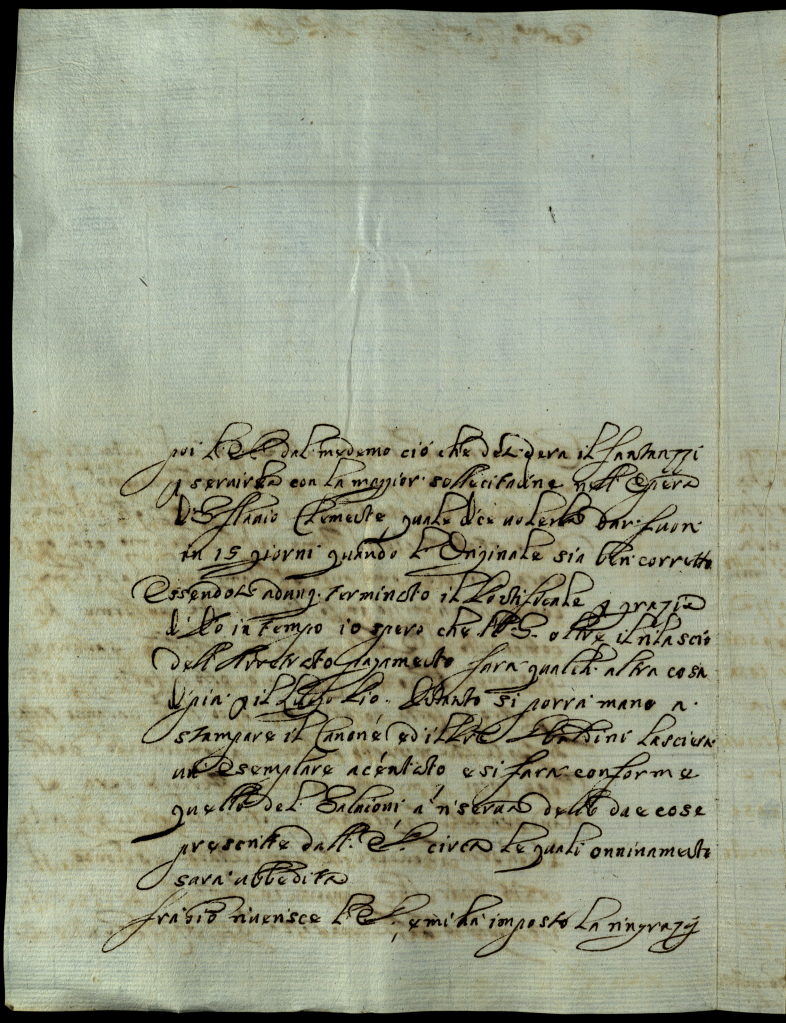 poi l'E. dal medemo ciò che del: pera il fantuzzi
p servirla con la maggior sollecitudine nell'Opera
di S. Flavio Clemente quale dice volerla dar fuori
in 15 giorni quando l'Originale sia ben corretto
Essendosi adunq. terminato il Pontificale p grazia
di Dio in tempo io spero che oltre il rilascio
dell' pagamento farà qualch. altra cosa
di più p il luogo Pio. Intanto si porrà mano a
stampare il Canone ed il Sre Ubaldini lascierà
un Esemplare acéntato e si farà conforme
quello del Salvioni a riserva delle due cose
prescritte dall' E. circa le quali onninamente
sarà ubbedita
riverisce l'E. e mi hà imposto la ringrazij